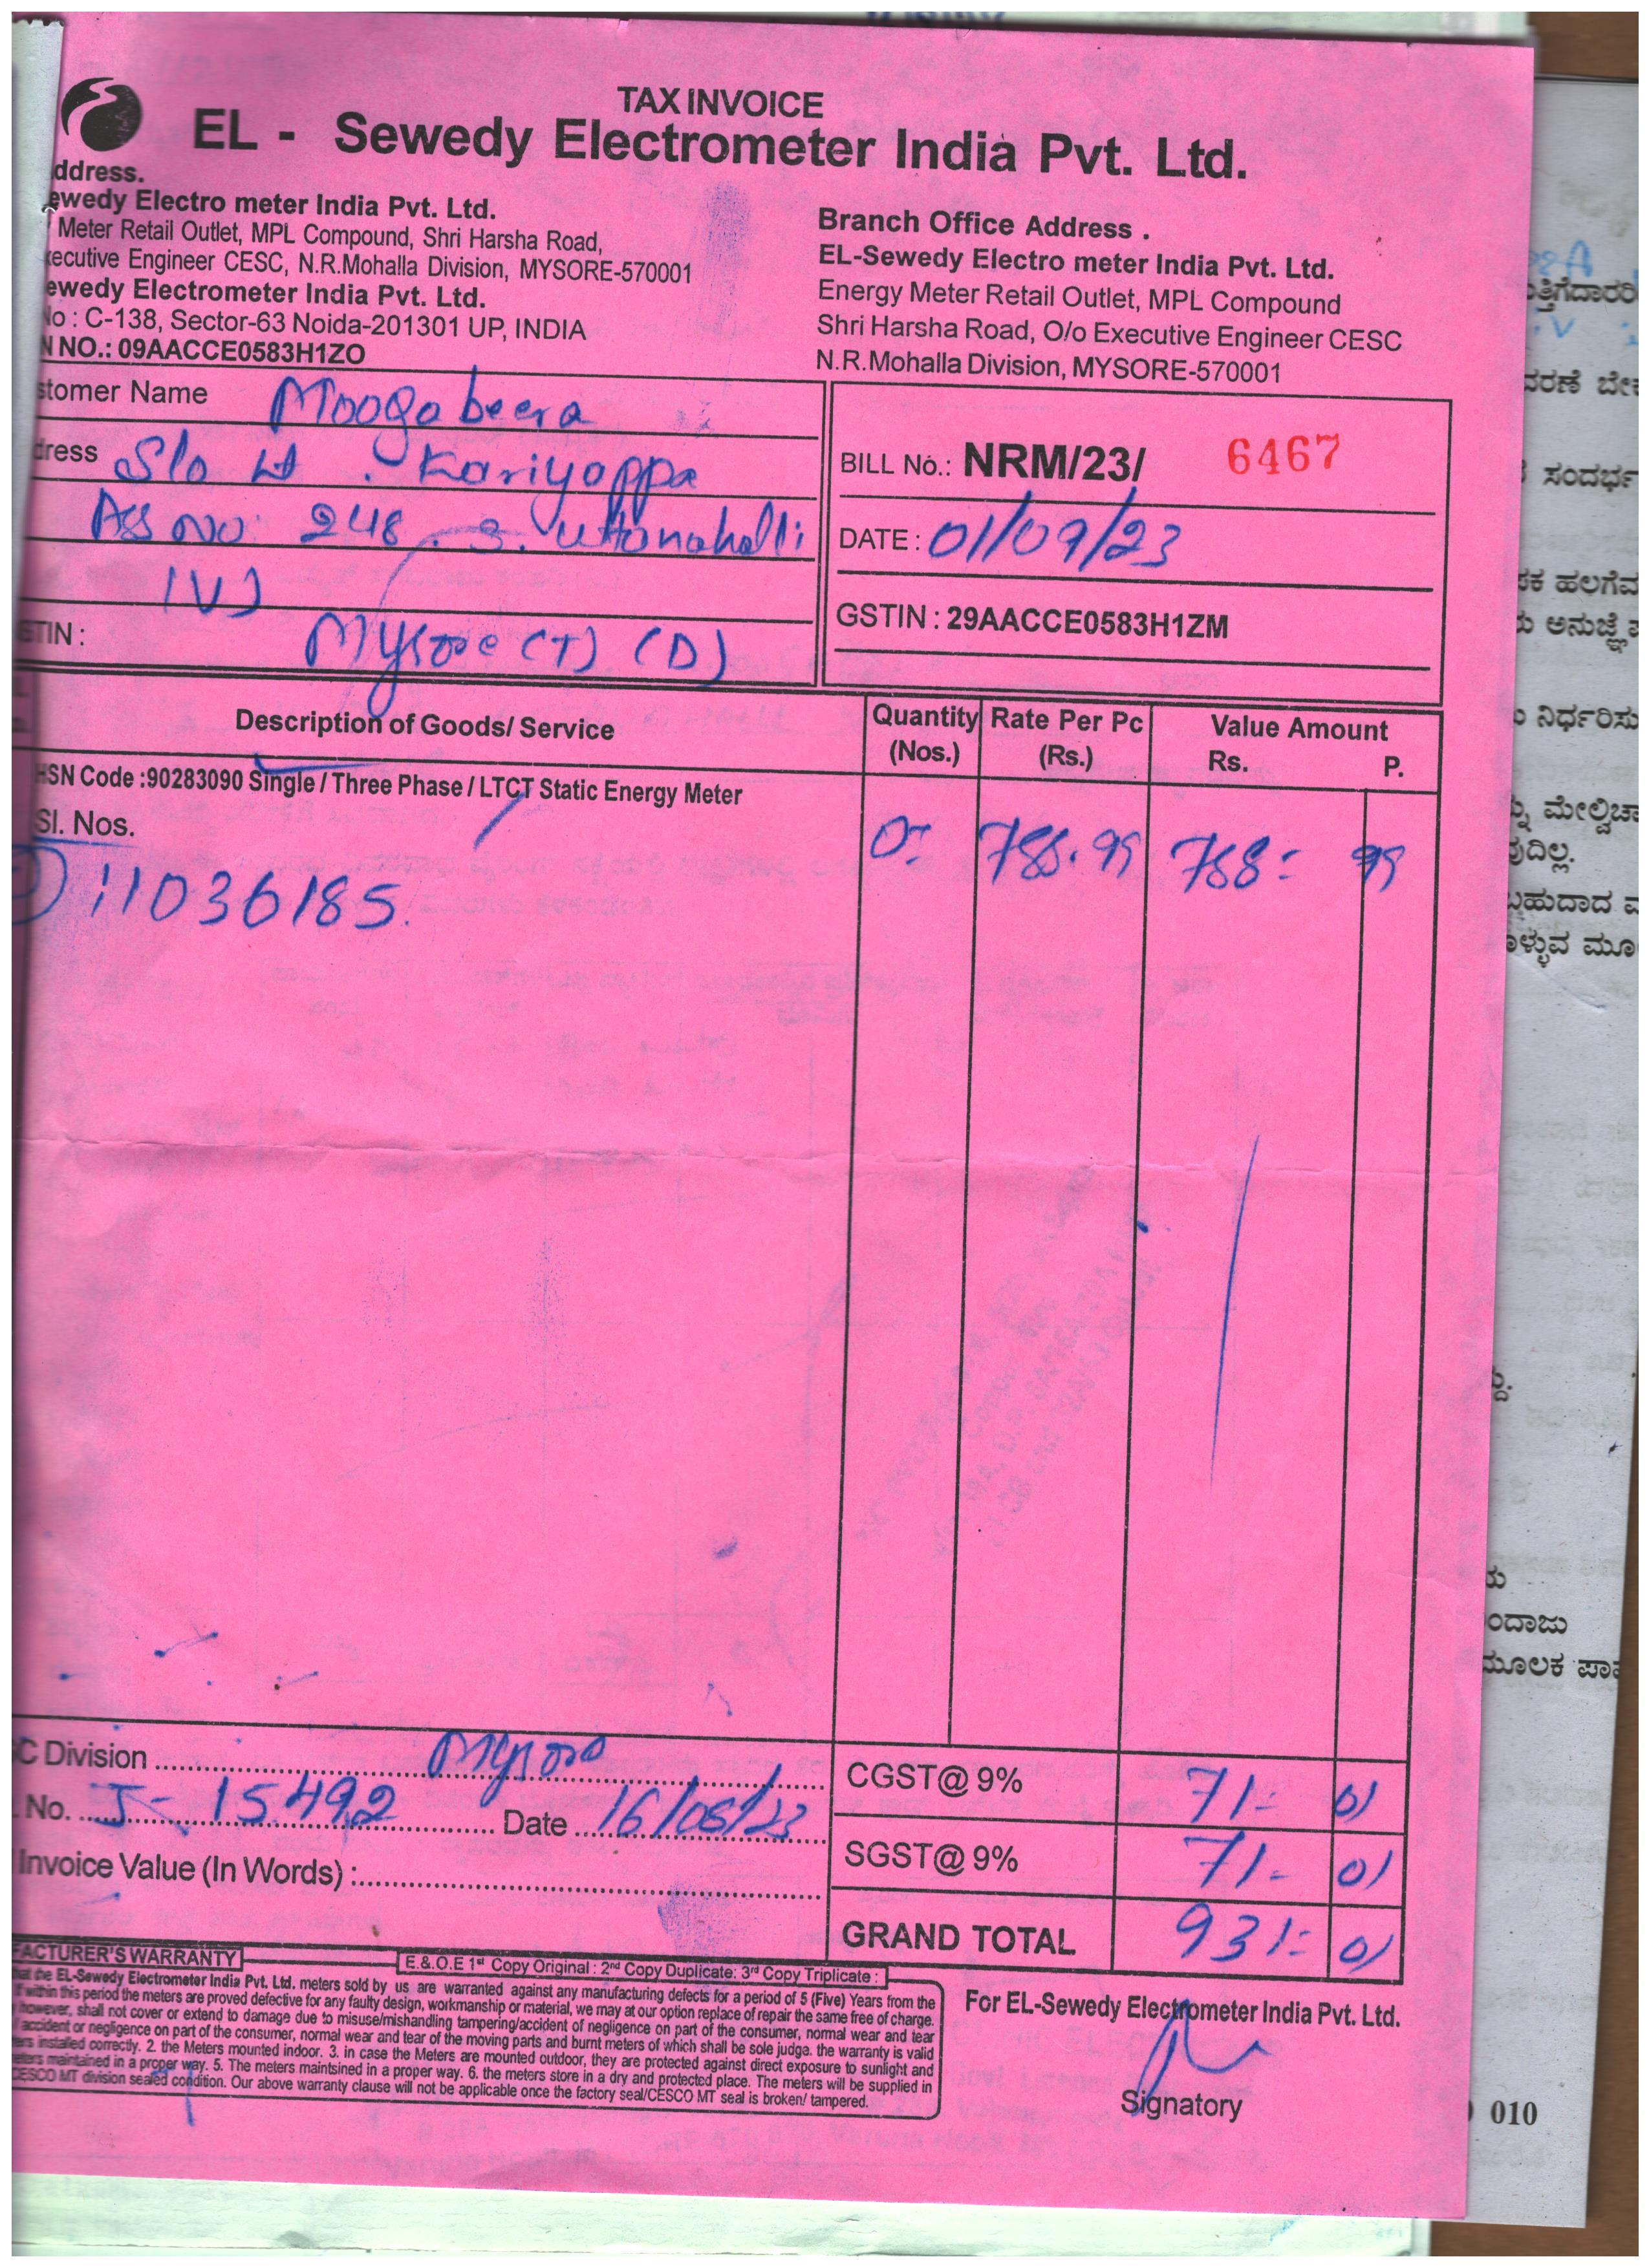 TAX INVOICE
EL - Sewedy Electrometer India Pvt. Ltd.
ddress.
ewedy Electro meter India Pvt. Ltd.
Meter Retail Outlet, MPL Compound, Shri Harsha Road,
xecutive Engineer CESC, N.R.Mohalla Division, MYSORE-570001
ewedy Electrometer India Pvt. Ltd.
No : C-138, Sector-63 Noida-201301 UP, INDIA
N NO.: 09AACCE0583H1ZO
Branch Office Address .
EL-Sewedy Electro meter India Pvt. Ltd.
Energy Meter Retail Outlet, MPL Compound
Shri Harsha Road, O/o Executive Engineer CESC
N.R.Mohalla Division, MYSORE-570001
stomer Name Moogabeera
dress S/o Lt . Kariyappa
Ass no: 248 . 3. uttanahalli
(V)
STIN : Mysore (T) (D)
BILL No.: NRM/23/ 6467
DATE : 01/09/23
GSTIN : 29AACCE0583H1ZM
Description of Goods/ Service Quantity (Nos.) Rate Per Pc (Rs.) Value Amount Rs. P.
HSN Code :90283090 Single / Three Phase / LTCT Static Energy Meter
Sl. Nos.
11036185. 788.99 788= 99
C Division Mysore
No. J- 15492 Date 16/08/23
Invoice Value (In Words) :
CGST@ 9% 71= 01
SGST@ 9% 71- 01
GRAND TOTAL 931= 01
FACTURER'S WARRANTY
E.&.O.E 1st Copy Original : 2nd Copy Duplicate: 3rd Copy Triplicate :
hat the EL-Sewedy Electrometer India Pvt. Ltd. meters sold by us are warranted against any manufacturing defects for a period of 5 (Five) Years from the
if within this period the meters are proved defective for any faulty design, workmanship or material, we may at our option replace of repair the same free of charge.
however, shall not cover or extend to damage due to misuse/mishandling tampering/accident of negligence on part of the consumer, normal wear and tear
/ accident or negligence on part of the consumer, normal wear and tear of the moving parts and burnt meters of which shall be sole judge. the warranty is valid
ers installed correctly. 2. the Meters mounted indoor. 3. in case the Meters are mounted outdoor, they are protected against direct exposure to sunlight and
eters maintained in a proper way. 5. The meters maintsined in a proper way. 6. the meters store in a dry and protected place. The meters will be supplied in
CESCO MT division sealed condition. Our above warranty clause will not be applicable once the factory seal/CESCO MT seal is broken/ tampered.
For EL-Sewedy Electrometer India Pvt. Ltd.
Signatory
ವರಣೆ ಬೇಕ
ಸಂದರ್ಭ
ಹಲಗೆವ
ಅನುಜ್ಞೆ
ನಿರ್ಧರಿಸು
ಮೇಲ್ವಿಚಾ
ವುದಿಲ್ಲ.
ಬಹುದಾದ
ಳ್ಳುವ ಮೂ
ರು
ಂದಾಜು
ಮೂಲಕ ಪಾವ
010